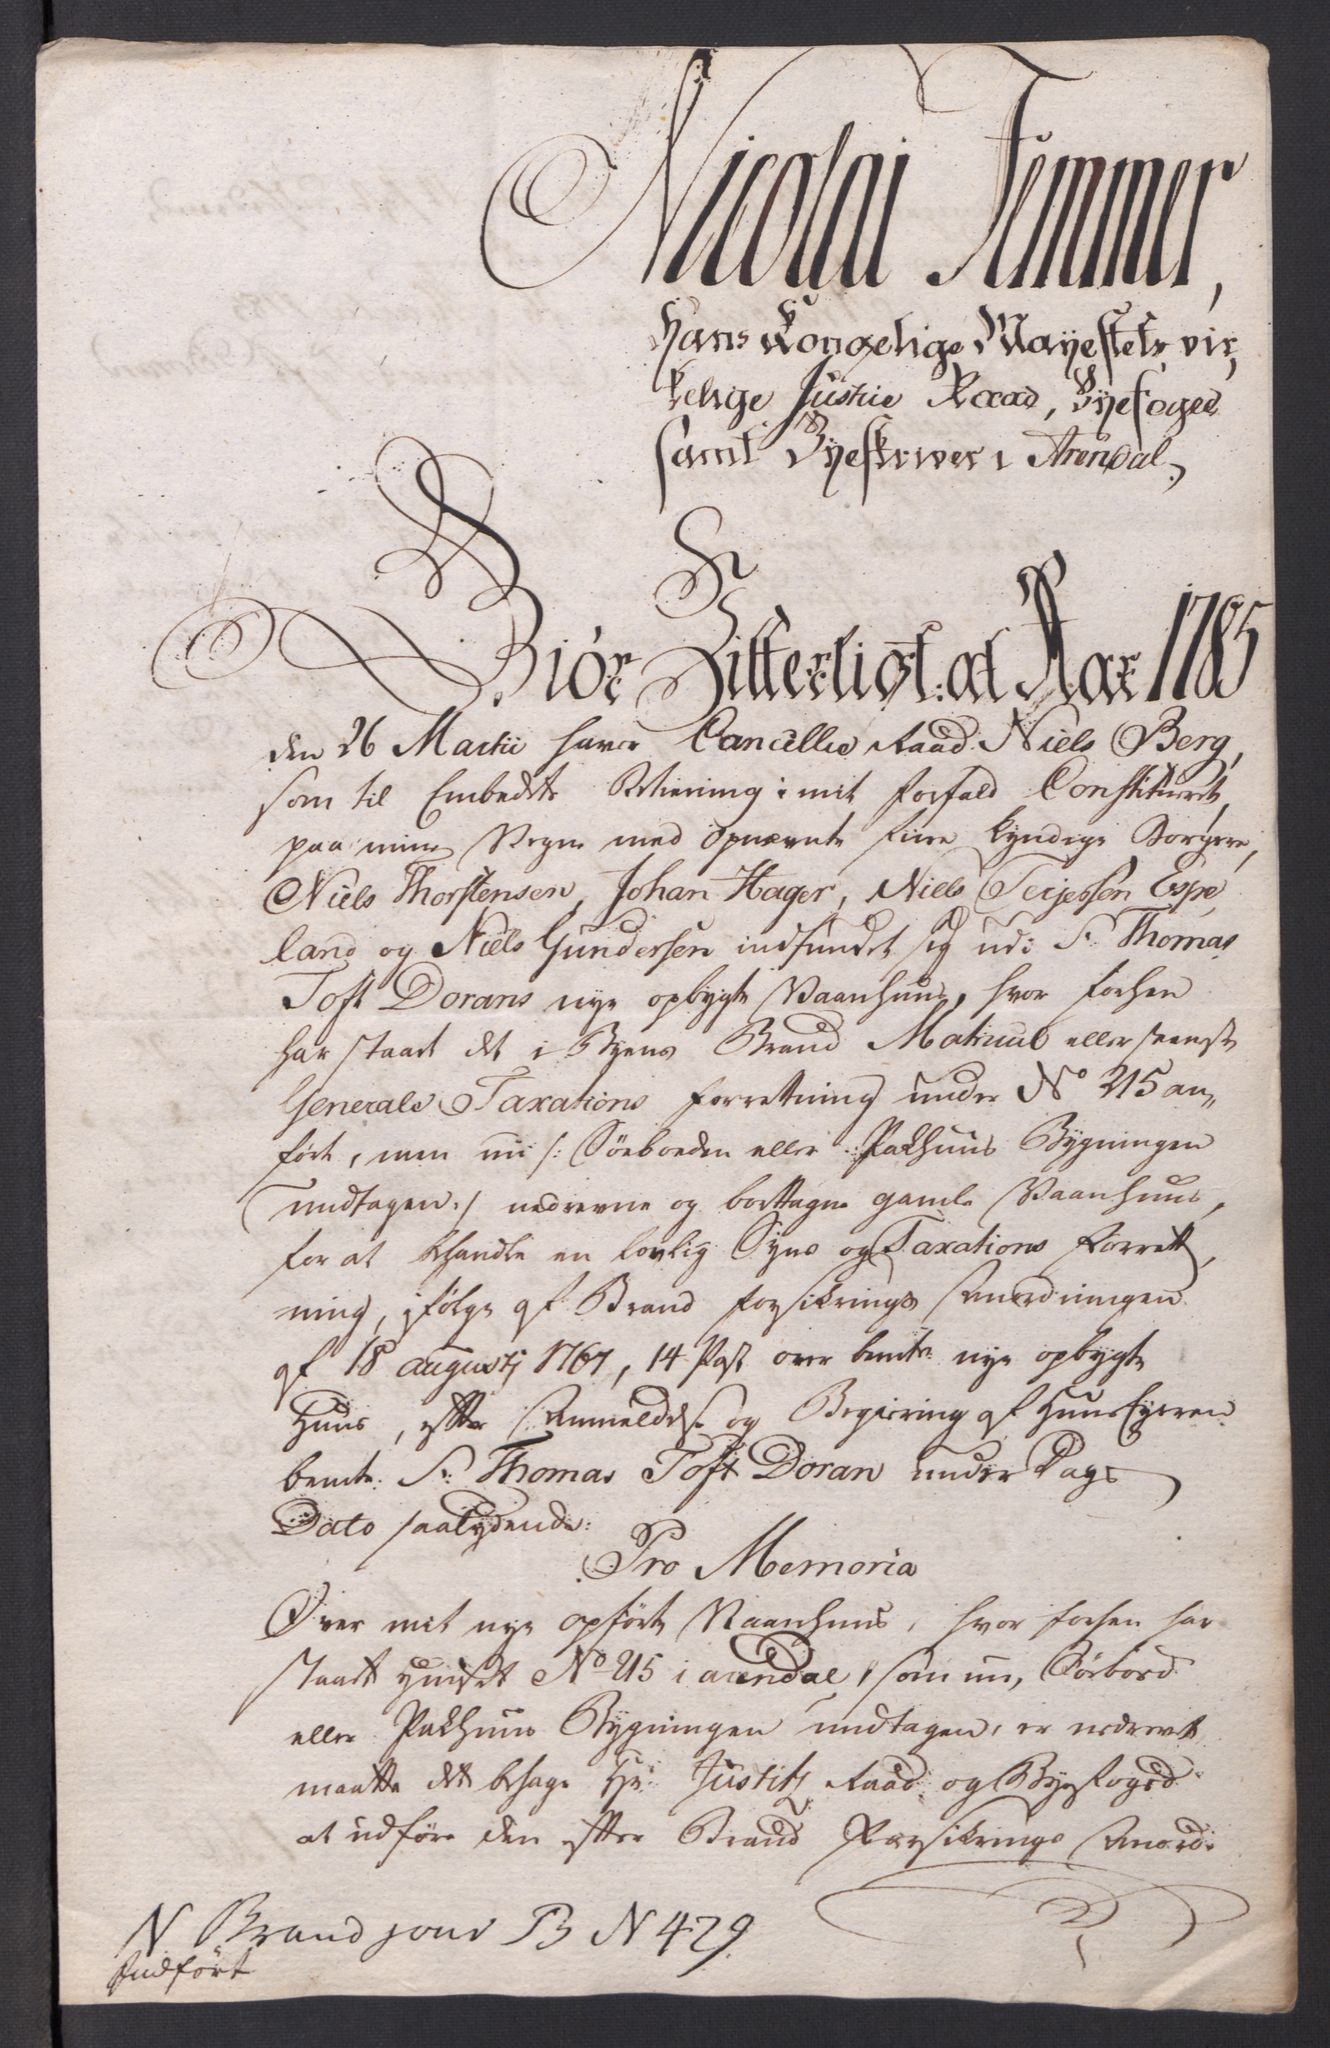 Nicolai Femmer,
Hans Kongelige Mayestets vir,
kelige Justice Raad, Byefoged
samt Byeskriver i Arendal,
Giör Vitterligt: at Aar 1785
den 26 Martii haver Cancellie Raad Niels Berg,
som til Embedets Betiening i mit Forfald Constitueret,
paa mine Vegne med opnævnte fiire kyndige Borgere,
Niels Thorstensen, Johan Hager, Niels Terjessen Espe,
land og Niels Gundersen indfundet sig udi Sr. Thomas
Toft Dorans nye opbygte Vaanhuus, hvor forhen
har staaet det i Byens Brand Matricul eller seenste
Generale Taxations Forretning under No 215 an„
fört, men nu /: Söeboeden eller Pakhuus Bygningen
undtagen :/ nedrevne og borttagne gamle Vaanhuus,
for at behandle en lovlig Syns og Taxations Forrett,
ning, ifölge af Brand Forsikrings Anordningen
af 18 augustj 1767, 14 Post over bemte nye opbygte
Huus, efter Anmeldelse og Begiering af Huus Eyeren
bemte Sr. Thomas Toft Doran under Dags
Dato saalydende:
Pro Memoria
Over mit nye opförte Vaanhuus, hvor forhen har
staaet Huuset No 215 i arendal, som nu, Söeboed
eller Pakhuus Bygningen undtagen, er nedrevet
maatte det behage Hr. Justitz Raad og Byefoged
at udföre den efter Brand Forsikrings Anord„
N Brand jour B N 429
Indfört